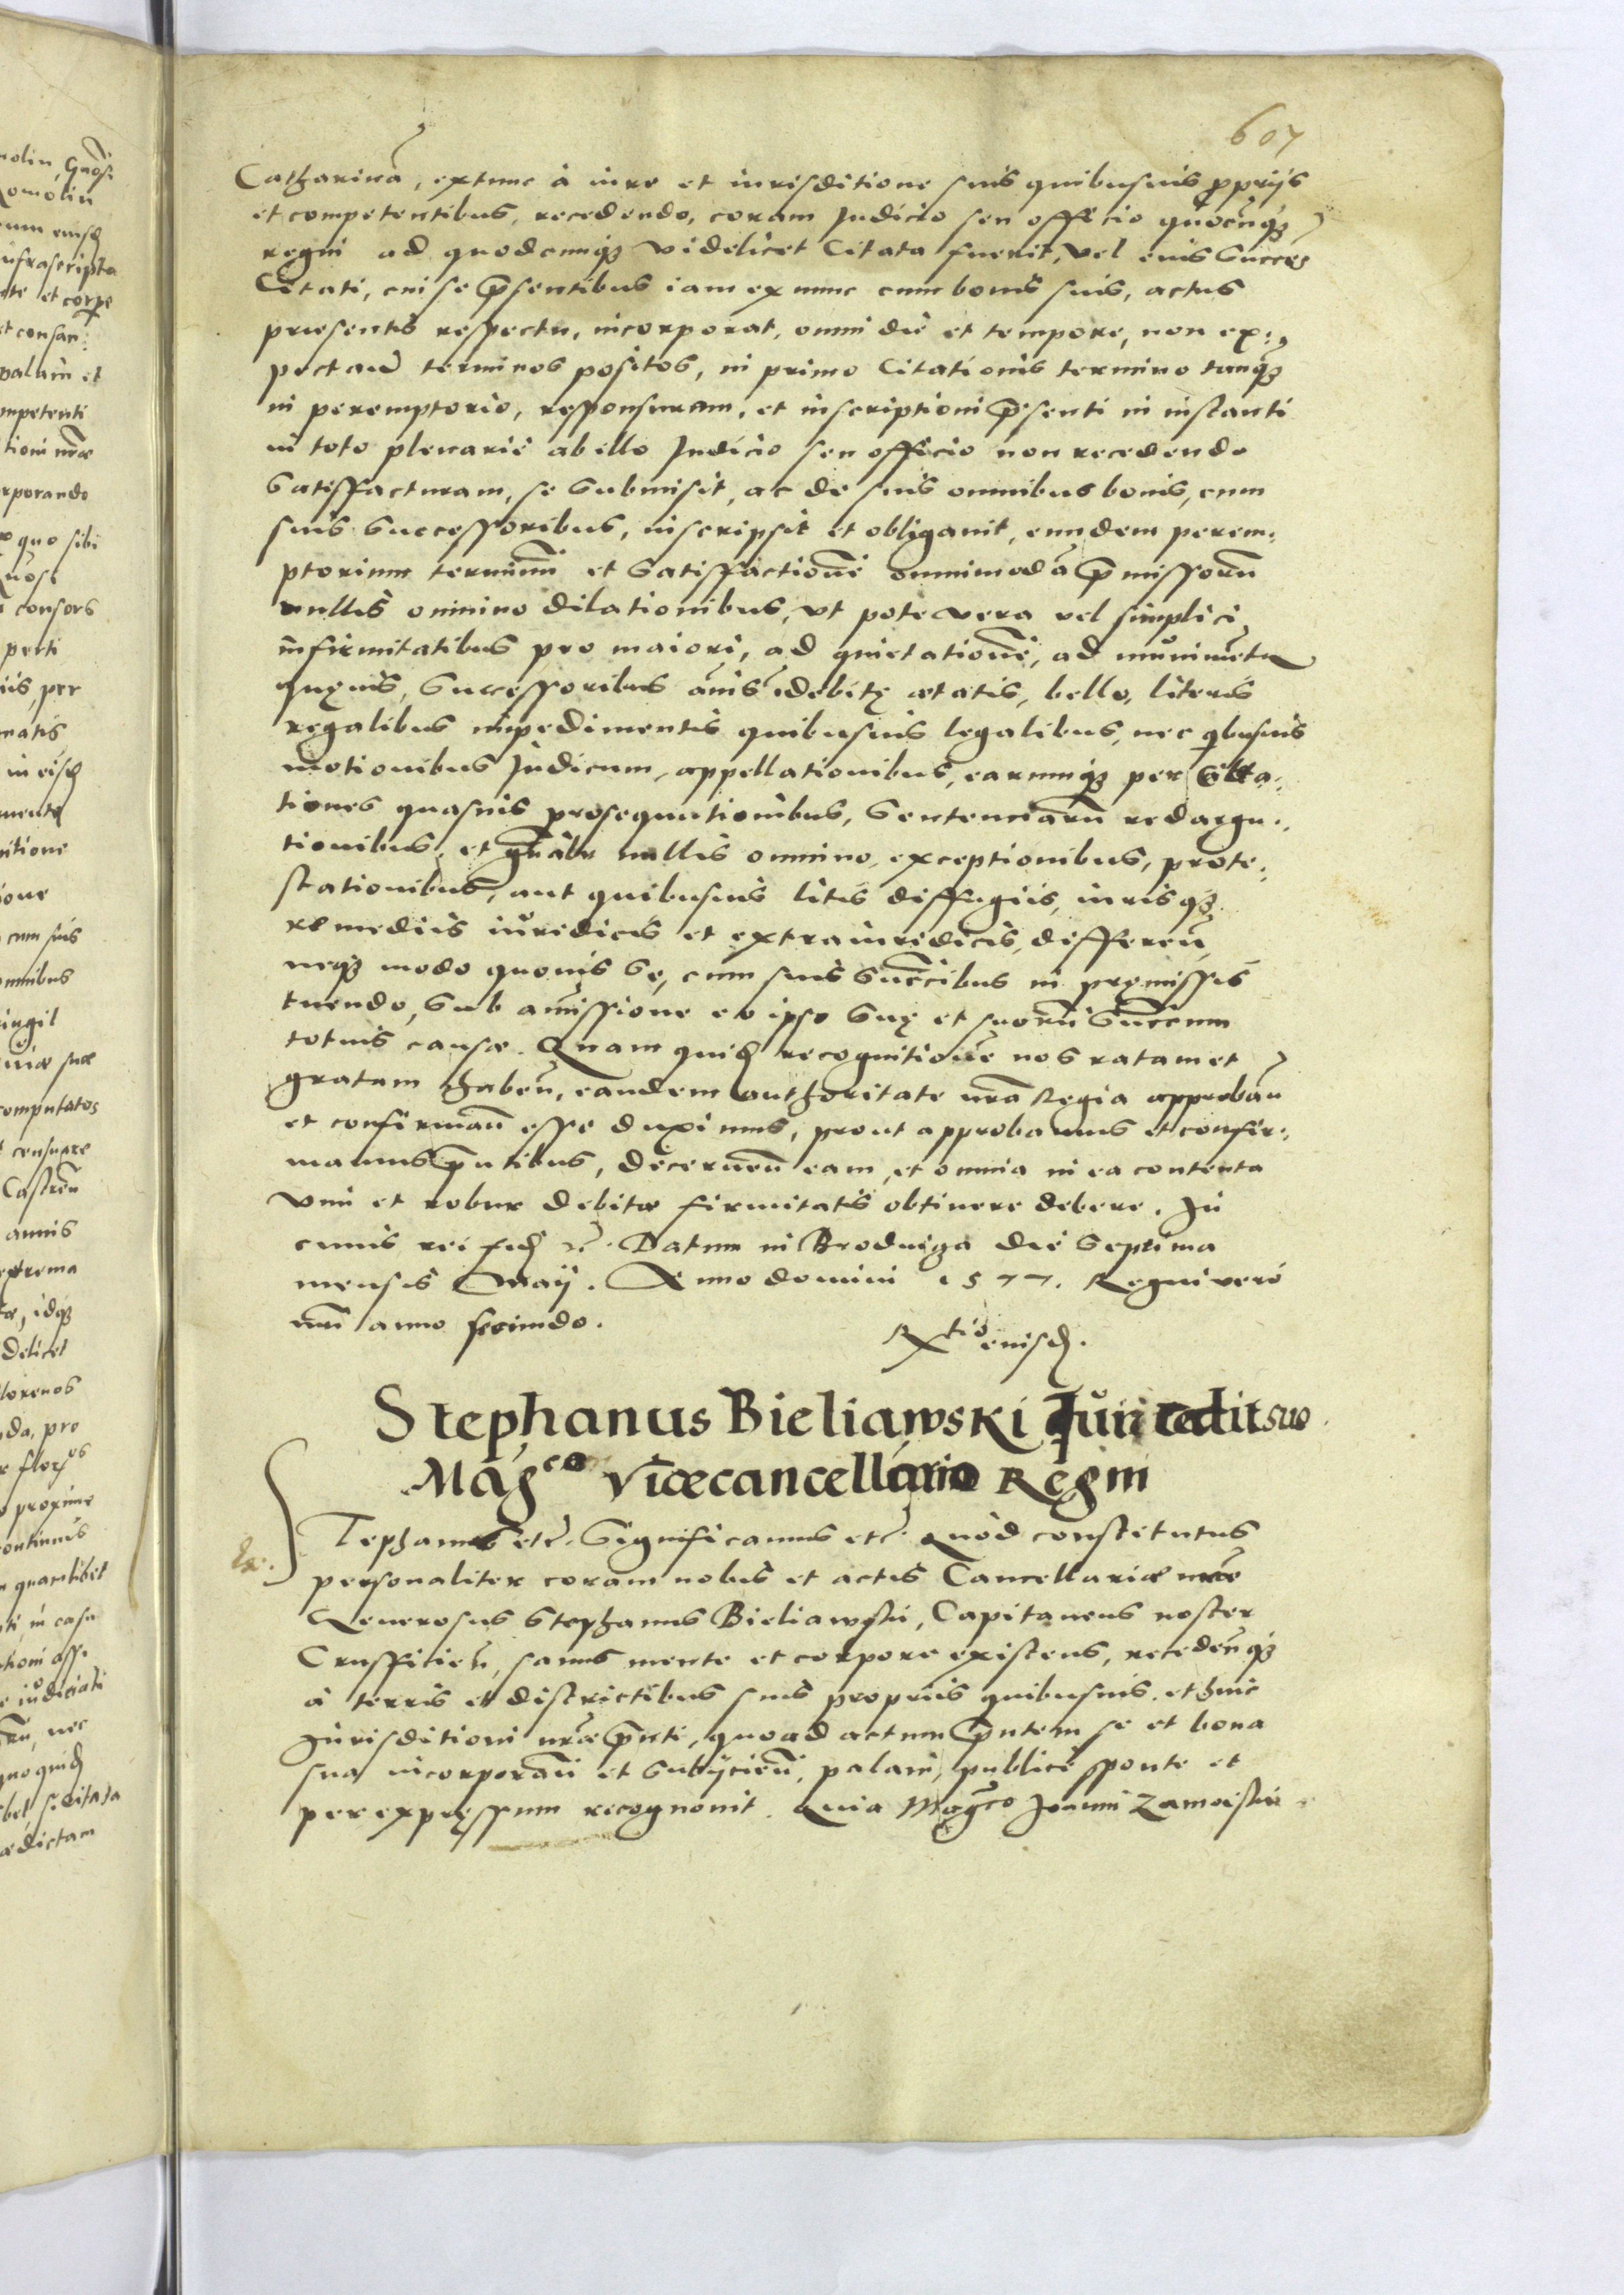 607
Catharinā, extunc à iure et iurisditione suis quibusuis proprijs
et competentibus, recedendo, coram Judicio seu officio quocūq₃
regni ad quodcumq₃ videlicet Citata fuerit, vel eius Succes
Citati, cui se p̄sentibus iam ex nunc cum bonis suis, actus
praesentis respectu, incorporat, omni die et tempore, non ex:
pectan̄ terminos positos, in primo Citationis termino tanq₃
in peremptorio, responsuram, et inscriptioni p̄senti in instanti
in toto plenariè ab illo Judicio seu officio non recedendo
Satisfacturam, se submisit, ac de suis omnibus bonis, cum
suis Successoribus, inscripsit et obligauit, eundem perem:
ptorium terminū et Satisfactionē omnimodā p̄missorū
nullis omnino dilationibus, vt pote vera vel simplici
infirmitatibus pro maiori, ad quietationē, ad munimēta
quęuis, Successoribus annis indebitę aetatis, bello, literis
regalibus impedimentis quibusuis legalibus, nec qbusuis
motionibus Judicum, appellationibus, earumq₃ per Cita:
tiones quasuis prosequutionibus, Sentenciarū redargu:
tionibus, et gn̄alr nullis omnino exceptionibus, prote:
stationibus, aut quibusuis litis diffugiis, iurisq₃
remediis iuridicis et extraiuridicis, differen̄,
neq₃ modo quouis se, cum suis succ̄ibus in pręmissis
tuendo, sub amissione eo ipso suę et suorū succ̄um
totius causae. Quam quid recognitionē nos ratam et
gratam haben̄, eandem authoritate nr̄a Regia approban̄
et confirman̄ esse duximus, prout approbamus et confir:
mamus p̄ntibus, decernen̄ eam, et omnia in ea contenta
vim et robur debitae firmitatis obtinere debere. In
cuius rei fid etc. Datum in Brodniza die Septima
mensis Maij. Anno domini 1577. Regni verò
nr̄i anno secundo.
Rtio eiusd.
Stephanus Bieliawski Juri cedit suo
Mag̃co Vicecancellario Regni
Tephanus etc. Significamus etc. Quòd constitutus
personaliter coram nobis et actis Cancellariae nr̄ae
Generosus Stephanus Bieliawski, Capitaneus noster
Crusficien̄, sanus mente et corpore existens, receden̄q₃
à terris et districtibus suis propriis quibusuis, et huic
Jurisditioni nr̄ae p̄nti, quo ad actum p̄ntem se et bona
sua incorporan̄ et subijcien̄, palam, publicè sponte et
per expressum recognouit. Quia Magco Joanni Zamoiski